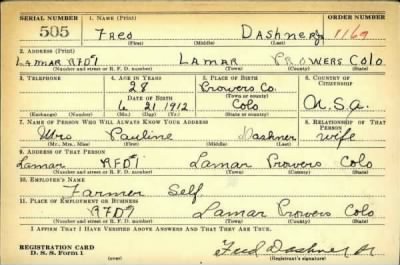 SERIAL NUMBER 1. NAME (Print) ORDER NUMBER
505 Fred Dashner Jr 1169
(First) (Middle) (Last)
2. ADDRESS (Print)
LAMAR RFD#1 LAMAR PROWERS COLO
(Number and street or R. F. D. number) (Town) (County) (State)
3. TELEPHONE 4. AGE IN YEARS 5. PLACE OF BIRTH 6. COUNTRY OF CITIZENSHIP
28 Prowers Co.
DATE OF BIRTH (Town or county)
6 21 1912 Colo U.S.A.
(Exchange) (No.) (Mo.) (Day) (Yr.) (State or country)
7. NAME OF PERSON WHO WILL ALWAYS KNOW YOUR ADDRESS 8. RELATIONSHIP OF THAT PERSON
Mrs Pauline Dashner wife
(Mr., Mrs., Miss) (First) (Middle) (Last)
9. ADDRESS OF THAT PERSON
Lamar RFD1 Lamar Prowers Colo
(Number and street or R. F. D. number) (Town) (County) (State)
10. EMPLOYER'S NAME
Farmer Self
11. PLACE OF EMPLOYMENT OR BUSINESS
RFD#1 Lamar Prowers Colo
(Number and street or R. F. D. number) (Town) (County) (State)
I AFFIRM THAT I HAVE VERIFIED ABOVE ANSWERS AND THAT THEY ARE TRUE.
REGISTRATION CARD
D. S. S. Form 1 (over) Fred Dashner Jr
(Registrant's signature)